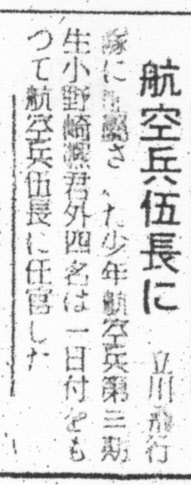 航空兵伍長に
立川飛行
隊に さ た少年航空兵第三期
生小野崎 君外四名は一日付をも
つて航空兵伍長に任官した